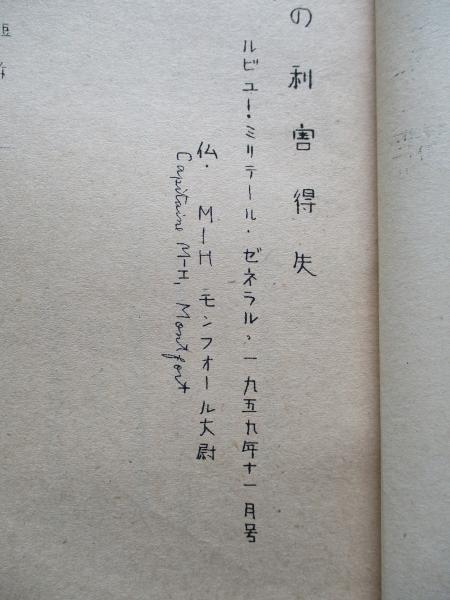 の利害得失
ルビュー・ミリテール・ゼネラル、一九五九年十一月号
仏. M-H モンフォール大尉
Capitaine M-H, Montfort